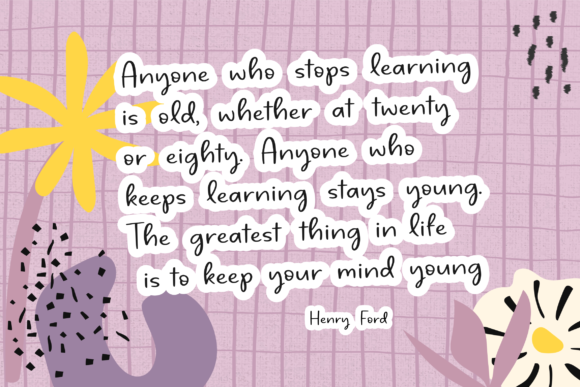 Anyone who stops learning
is old, whether at twenty
or eighty. Anyone who
keeps learning stays young.
The greatest thing in life
is to keep your mind young
Henry Ford